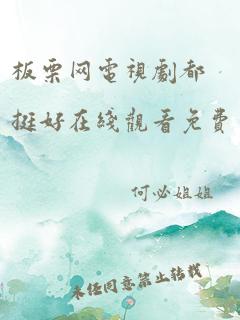 板栗网電視劇都
挺好在綫觀看免費
何必姐姐
未经同意禁止转载